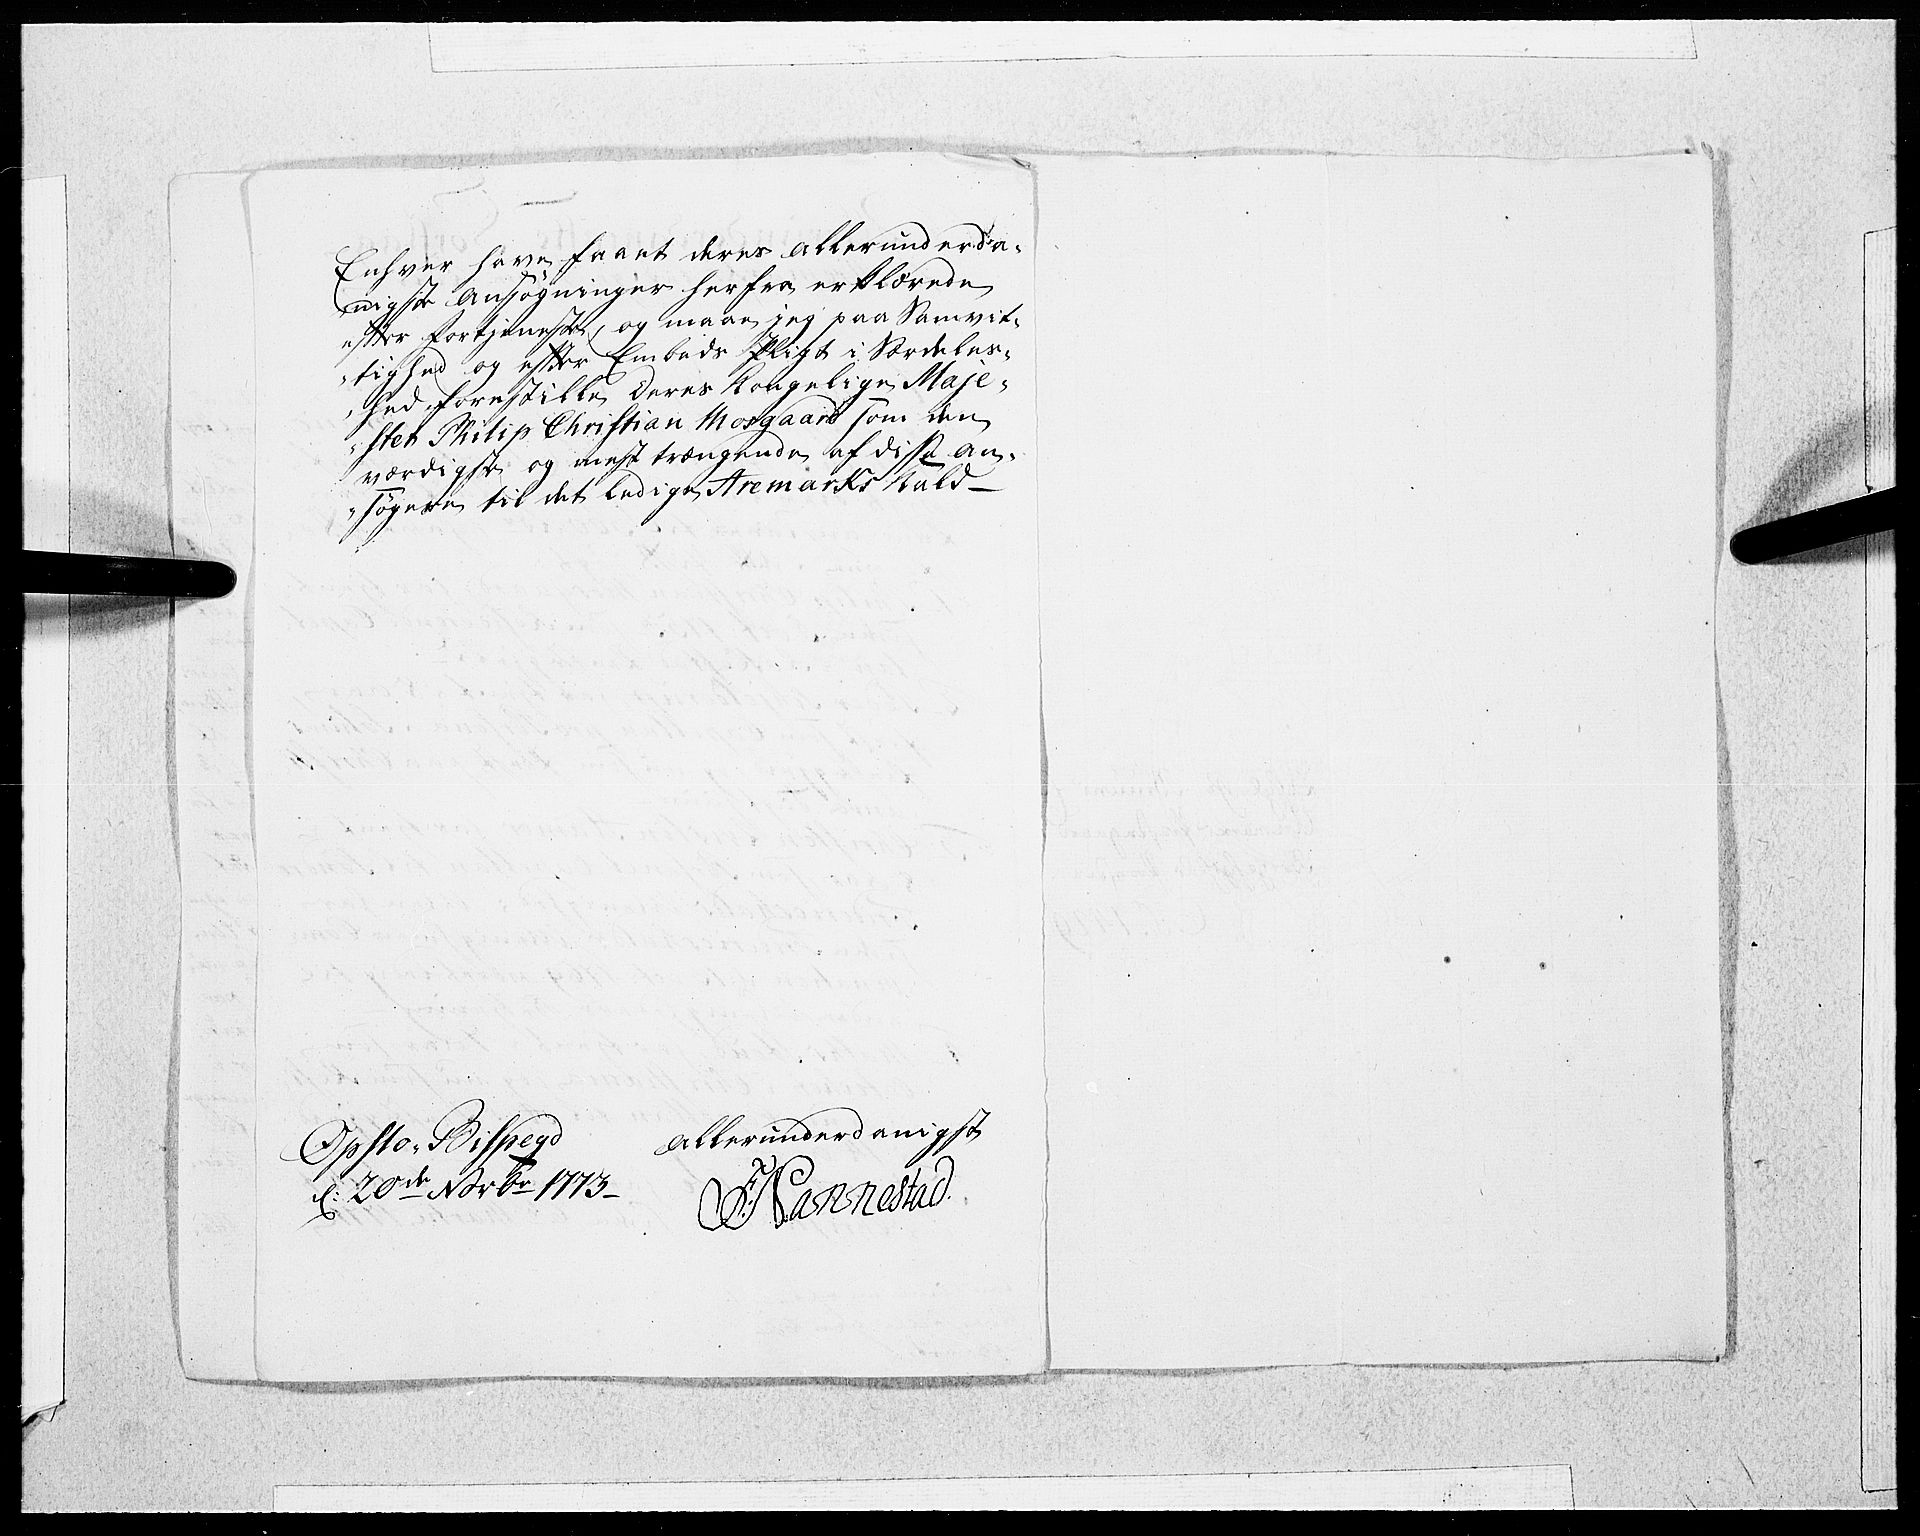 Enhver have faaet deres allerunderda-
nigste Ansøgninger herfra erklærede
efter Fortjeneste, og maae jeg paa Samvit-
-tighed og efter Embeds Pligt i Særdeles-
-hed forestille Deres Kongelige Maje-
-stet Philip Christian Mosgaard som den
værdigste og mest trængende af disse An-
-søgere til det ledige Aremarks Kald-
Opslo-Bispegd
d: 20de Novbr 1773-
allerunderdanigst
F: Nannestad.